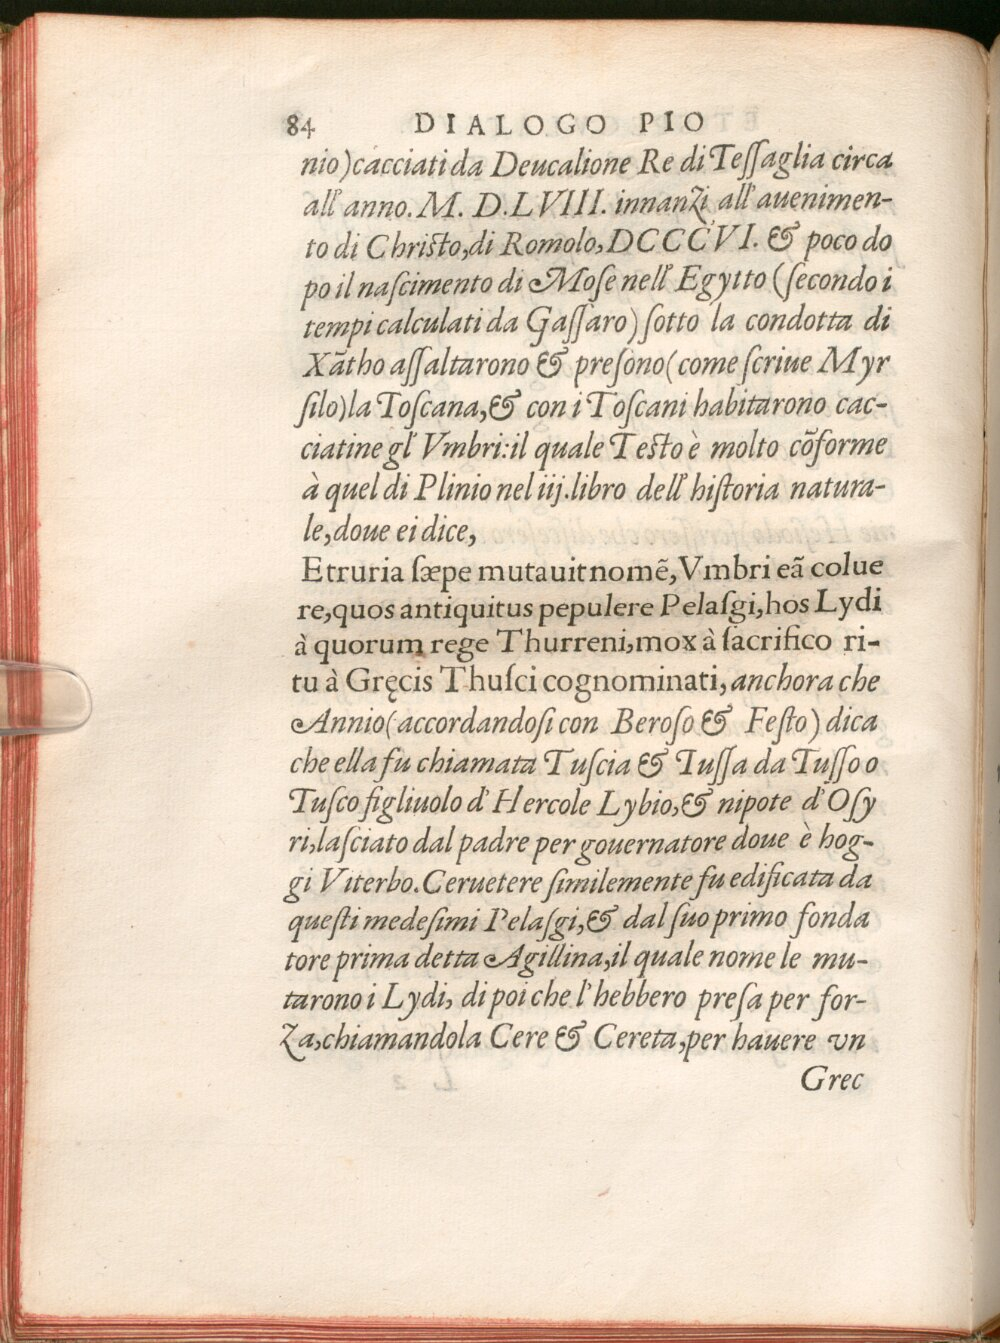 84 DIALOGO PIO
nio)cacciati da Deucalione Re di Teſſaglia circa
all'anno. M. D.LVIII. innanzi all'auenimen-
to di Chriſto,di Romolo,DCCCVI. & poco do
po il naſcimento di Moſe nell'Egytto (ſecondo i
tempi calculati da Gaſſaro) ſotto la condotta di
Xãtho aſſaltarono & preſono(come ſcriue Myr
ſilo)la Toſcana,& con i Toſcani habitarono cac-
ciatine gl'Vmbri:il quale Teſto è molto cõforme
à quel di Plinio nel iij.libro dell'hiſtoria natura-
le,doue ei dice,
Etruria ſæpe mutauit nomẽ,Vmbri eã colue
re,quos antiquitus pepulere Pelaſgi,hos Lydi
à quorum rege Thurreni,mox à ſacrifico ri-
tu à Gręcis Thuſci cognominati, anchora che
Annio(accordandoſi con Beroſo & Feſto) dica
che ella fu chiamata Tuſcia & Tuſſa da Tuſſo o
Tuſco figliuolo d'Hercole Lybio,& nipote d'Oſy
ri,laſciato dal padre per gouernatore doue è hog-
gi Viterbo.Ceruetere ſimilemente fu edificata da
queſti medeſimi Pelaſgi,& dal ſuo primo fonda
tore prima detta Agillina,il quale nome le mu-
tarono i Lydi, di poi che l'hebbero preſa per for-
za,chiamandola Cere & Cereta,per hauere vn
Grec